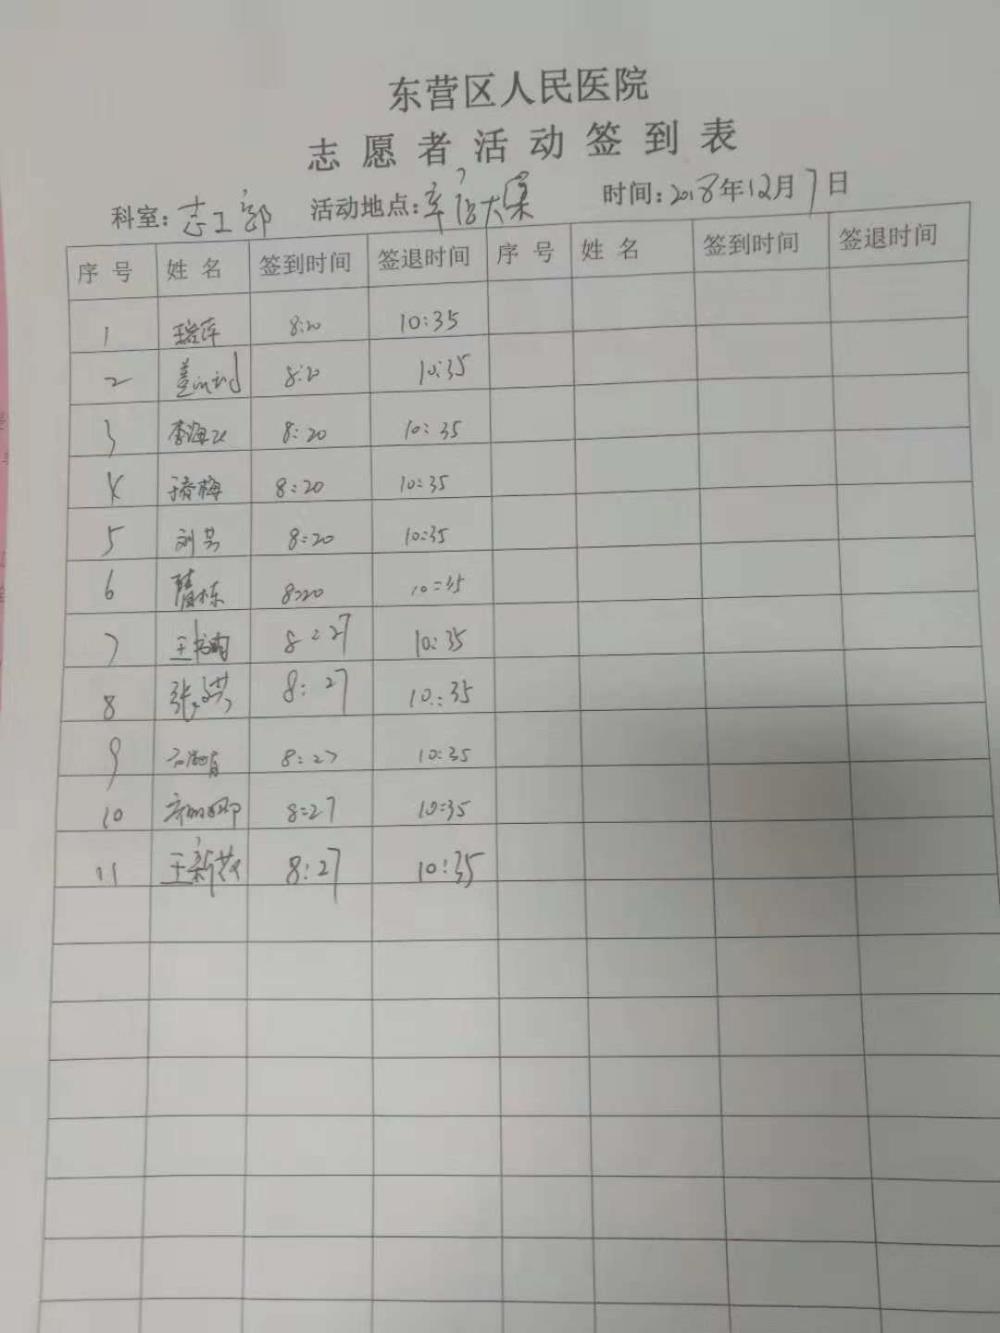 东营区人民医院
志愿者活动签到表
科室:志工部 活动地点:辛店大集 时间:2018年12月7日
序号 姓名 签到时间 签退时间 序号 姓名 签到时间 签退时间
1 8:20 10:35
2 8:20 10:35
3 李海 8:20 10:35
4 于春梅 8:20 10:35
5 刘芸 8:20 10:35
6 8:20 10:35
7 王 8:27 10:35
8 张 8:27 10:35
9 8:27 10:35
10 8:27 10:35
11 王新 8:27 10:35